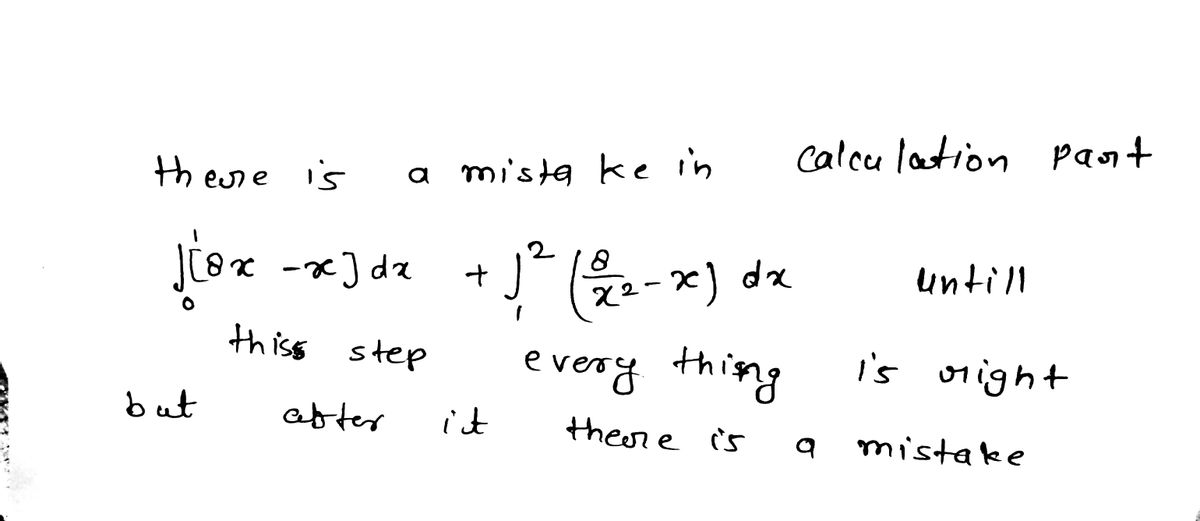 there is a mistake in calculation part
∫₀¹[8x - x] dx + ∫₁² (8/x² - x) dx untill
thiss step every thing i's right
but after it there is a mistake